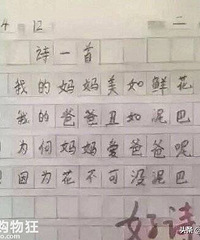 4 12 二
诗一首
我的妈妈美如鲜花
我的爸爸丑如泥巴
为何妈妈爱爸爸呢
因为花不可没泥巴
好诗
购物狂